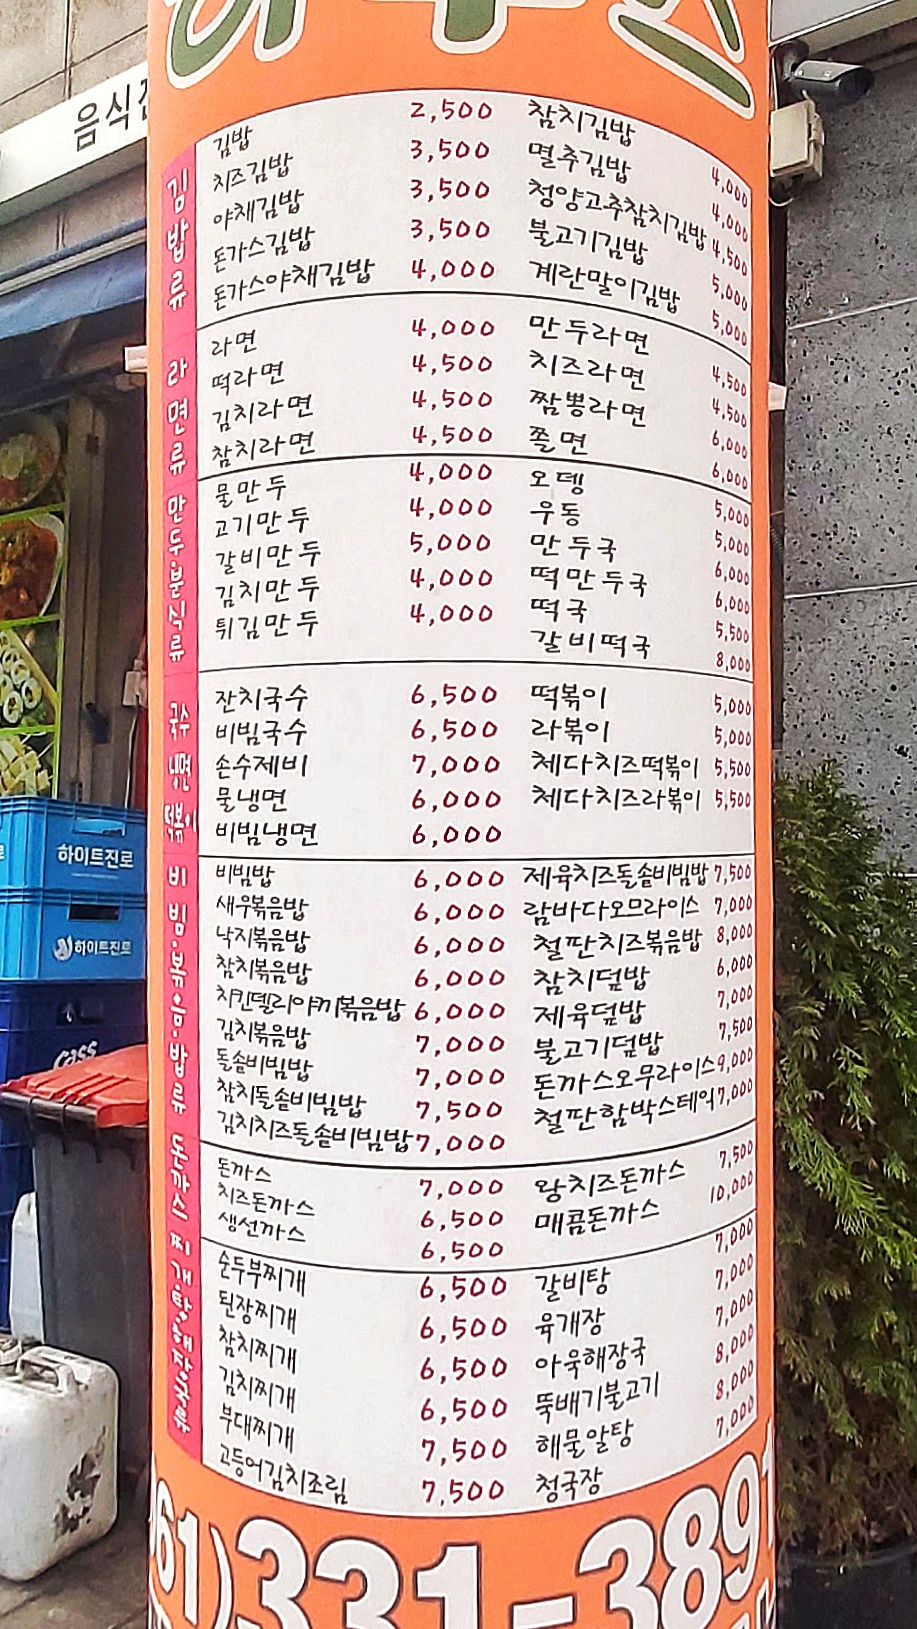 음식
김밥류
김밥 2,500 참치김밥 4,000
치즈김밥 3,500 멸추김밥 4,000
야채김밥 3,500 청양고추참치김밥 4,500
돈가스김밥 3,500 불고기김밥 5,000
돈가스야채김밥 4,000 계란말이김밥 5,000
라면류
라면 4,000 만두라면 4,500
떡라면 4,500 치즈라면 4,500
김치라면 4,500 짬뽕라면 6,000
참치라면 4,500 쫄면 6,000
만두·분식류
물만두 4,000 오뎅 5,000
고기만두 4,000 우동 5,000
갈비만두 5,000 만두국 6,000
김치만두 4,000 떡만두국 6,000
튀김만두 4,000 떡국 5,500
갈비떡국 8,000
국수 냉면 떡볶이
잔치국수 6,500 떡볶이 5,000
비빔국수 6,500 라볶이 5,000
손수제비 7,000 체다치즈떡볶이 5,500
물냉면 6,000 체다치즈라볶이 5,500
비빔냉면 6,000
비빔·볶음·밥류
비빔밥 6,000 제육치즈돌솥비빔밥 7,500
새우볶음밥 6,000 람바다오므라이스 7,000
낙지볶음밥 6,000 철판치즈볶음밥 8,000
참치볶음밥 6,000 참치덮밥 6,000
치킨델리야끼볶음밥 6,000 제육덮밥 7,000
김치볶음밥 7,000 불고기덮밥 7,500
돌솥비빔밥 7,000 돈까스오무라이스 9,000
참치돌솥비빔밥 7,500 철판함박스테잌 7,000
김치치즈돌솥비빔밥 7,000
돈까스
돈까스 7,000 왕치즈돈까스 7,500
치즈돈까스 6,500 매콤돈까스 10,000
생선까스 6,500
찌개·탕·해장국류
순두부찌개 6,500 갈비탕 7,000
된장찌개 6,500 육개장 7,000
참치찌개 6,500 아욱해장국 7,000
김치찌개 6,500 뚝배기불고기 8,000
부대찌개 7,500 해물알탕 8,000
고등어김치조림 7,500 청국장 7,000
61)331-3891
하이트진로
하이트진로
Cass